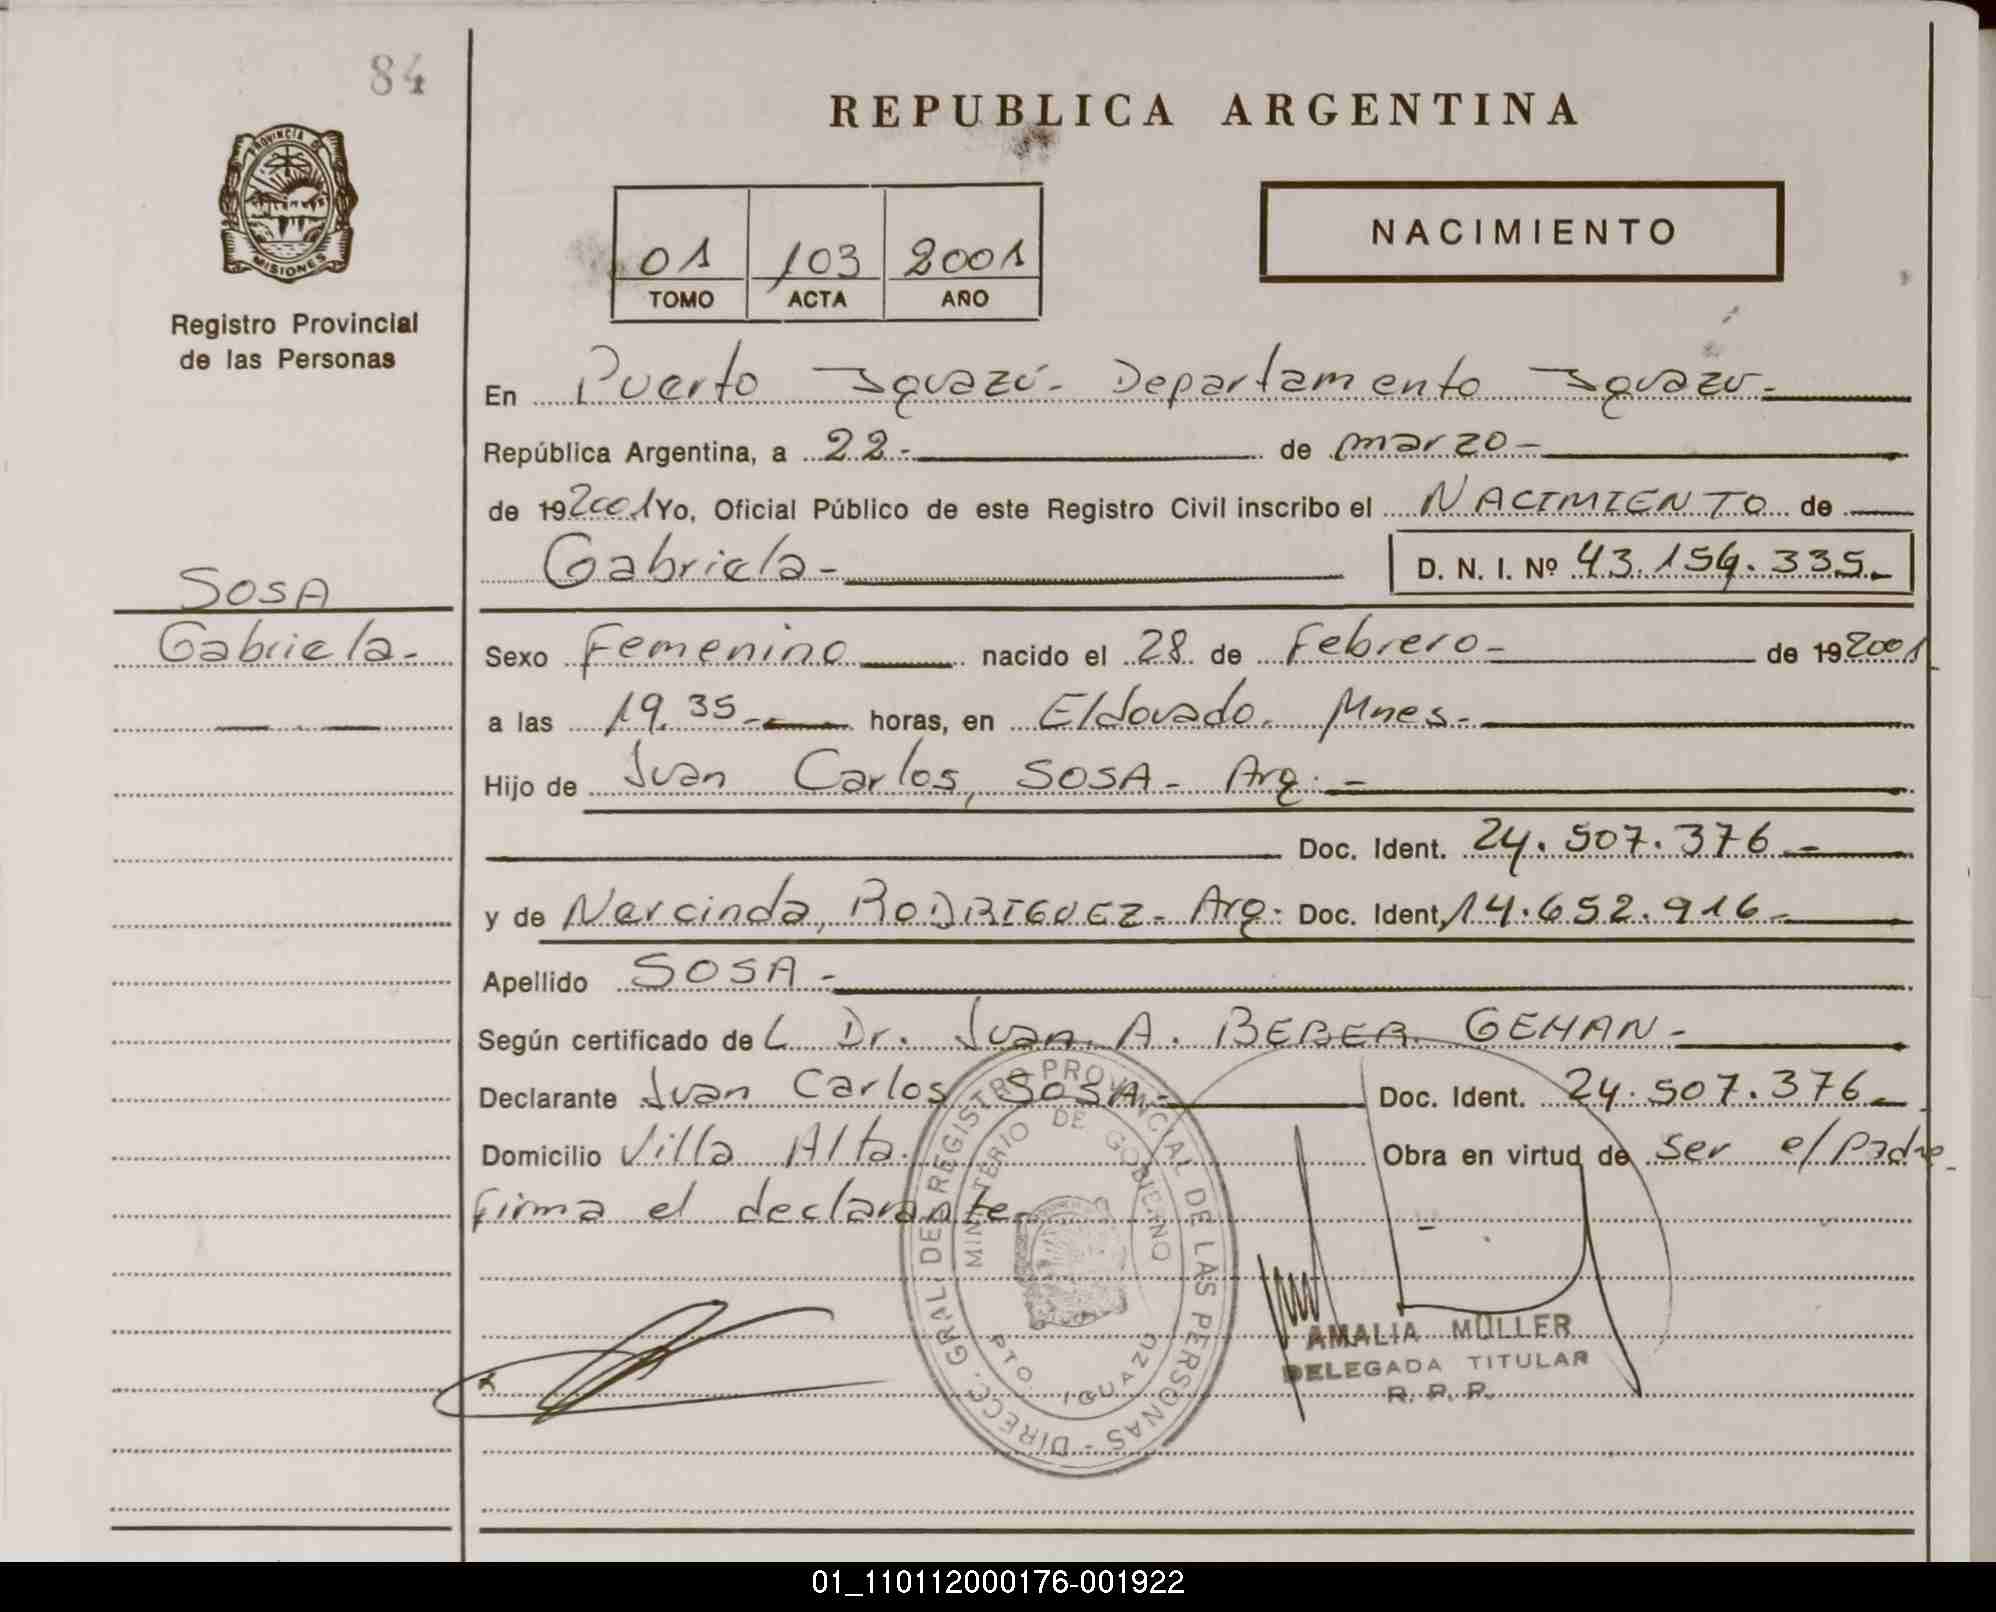 84
REPUBLICA ARGENTINA
PROVINCIA DE
MISIONES
Registro Provincial
de las Personas
01 103 2001
TOMO ACTA AÑO
NACIMIENTO
En Puerto Iguazú - Departamento Iguazu -
República Argentina, a 22 - de marzo -
de 19 2001 Yo, Oficial Público de este Registro Civil inscribo el NACIMIENTO de
Gabriela - D. N. I. Nº 43.154.335.-
SOSA
Gabriela -
Sexo Femenino nacido el 28 de Febrero - de 19 2001
a las 19.35 - horas, en Eldorado. Mnes. -
Hijo de Juan Carlos, SOSA - Arg. -
Doc. Ident. 24.507.376 -
y de Narcinda, RODRIGUEZ - Arg. Doc. Ident. 14.652.916 -
Apellido SOSA -
Según certificado de L Dr. Juan A. BEBER GEHAN -
Declarante Juan Carlos SOSA - Doc. Ident. 24.507.376 -
Domicilio Villa Alta. Obra en virtud de ser el padre -
Firma el declarante
DIRECC. GRAL. DE REGISTRO PROVINCIAL DE LAS PERSONAS -
MINISTERIO DE GOBIERNO
PTO. IGUAZU
AMALIA MULLER
DELEGADA TITULAR
R. P. P.
01_110112000176-001922